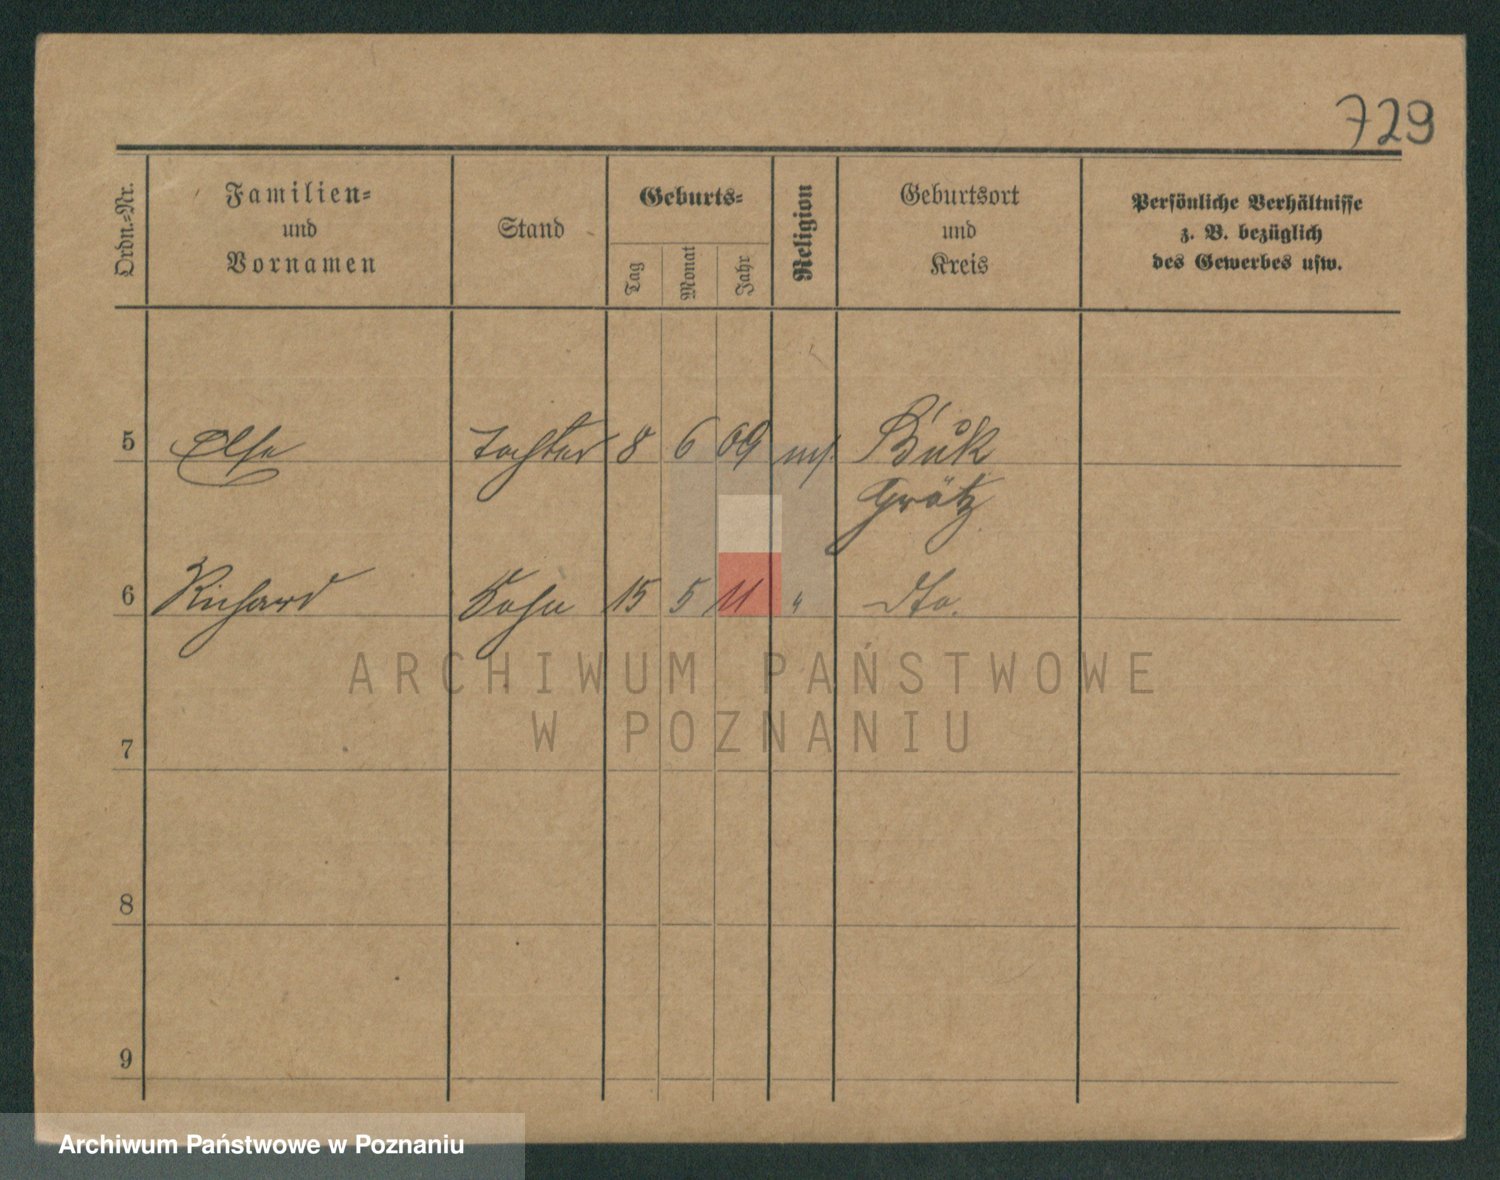 729
Ordn.-Nr.
Familien-
und
Vornamen
Stand
Geburts-
Tag
Monat
Jahr
Religion
Geburtsort
und
Kreis
Persönliche Verhältnisse
z. B. bezüglich
des Gewerbes usw.
5 Else Tochter 8 6 09 Buk
Grätz
6 Richard Sohn 15 5 11 " dto.
ARCHIWUM PAŃSTWOWE
W POZNANIU
7
8
9
Archiwum Państwowe w Poznaniu